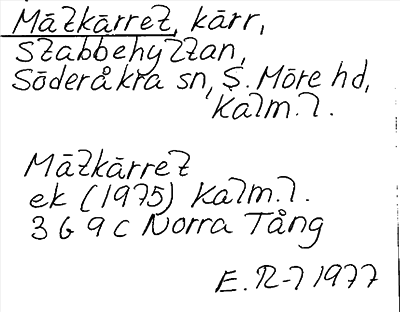 Mätkärret, kärr,
Stabbehyttan,
Söderåkra sn, S. Möre hd,
Kalm. l.
Mätkärret
ek (1975) Kalm. l.
3 G 9 c Norra Tång
E. R-l 1977